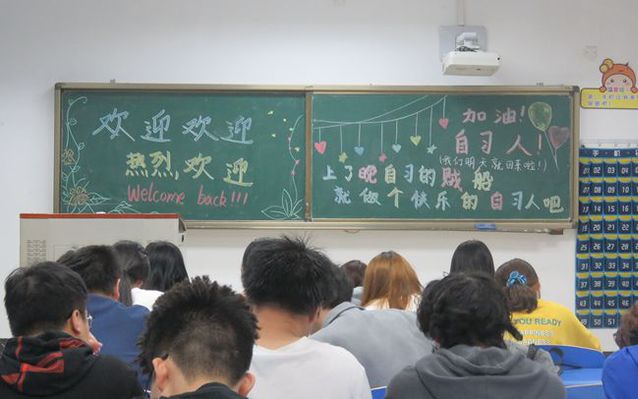 欢迎欢迎
热烈,欢迎
Welcome back!!!
加油!
自习人!
(我们明天就回来啦!)
上了晚自习的贼船
就做个快乐的自习人吧
YOU READY